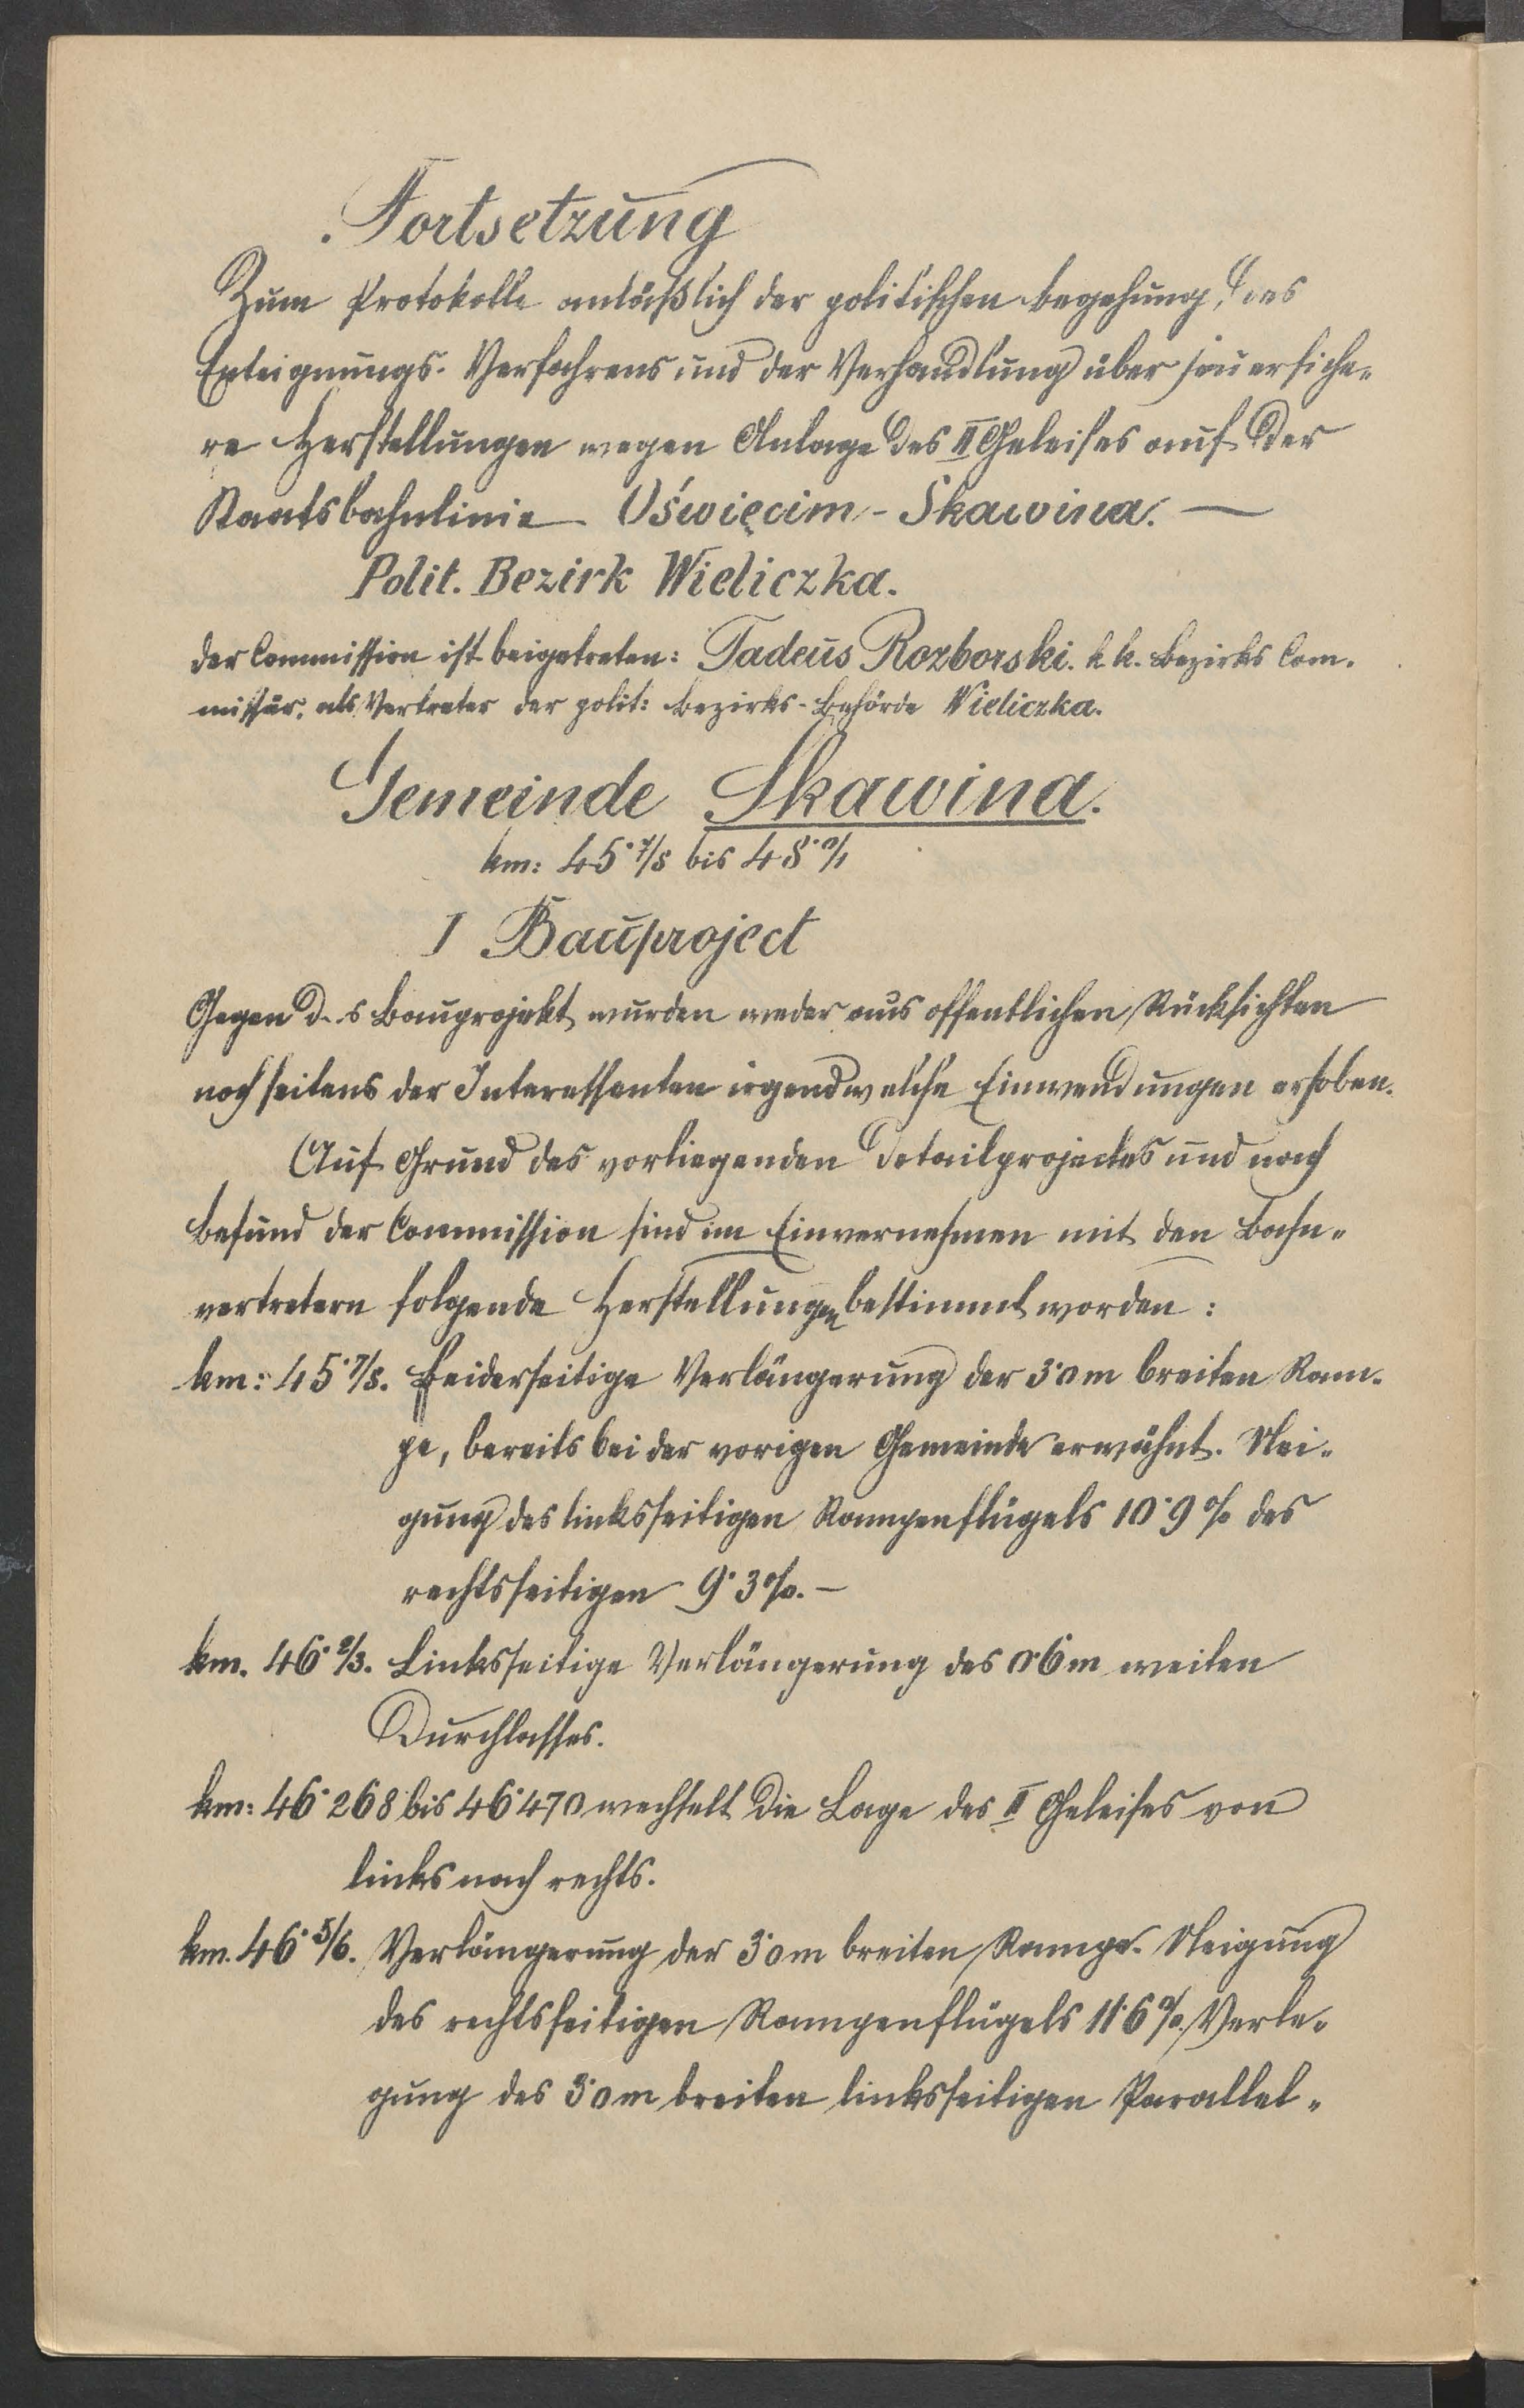 Fortsetzung
Zum Protokolle anläßlich der politischen Begehung, des
Enteignungs-Verfahrens und der Verhandlung über feuersiche-
re Herstellungen wegen Anlage des II Geleises auf der
Staatsbahnlinie Oświęcim-Skawina. —
Polit. Bezirk Wieliczka.
Der Commission ist beigetreten: Tadeus Rozborski. k. k. Bezirks Com-
missär, als Vertreter der polit: Bezirks-Behörde Wieliczka.
Gemeinde Skawina.
km: 45·7/8 bis 48·0/1
I Bauproject
Gegen d s Bauprojekt wurden weder aus offentlichen Rücksichten
noch seitens der Interessenten irgendwelche Einwendungen erhoben.
Auf Grund des vorliegenden Detailprojectes und nach
Befund der Commission sind im Einvernehmen mit den Bahn-
vertretern folgende Herstellungen bestimmt worden:
km: 45·7/8. Beiderseitige Verlängerung der 3·0m breiten Ram-
pe, bereits bei der vorigen Gemeinde erwähnt. Nei-
gung des linksseitigen Rampenflügels 10·9% des
rechtsseitigen 9·3%. —
km. 46·2/3. Linksseitige Verlängerung des 0·6m weiten
Durchlasses.
km: 46·268 bis 46·470 wechselt die Lage des II Geleises von
links nach rechts.
km. 46·5/6. Verlängerung der 3·0m breiten Rampe. Neigung
des rechtsseitigen Rampenflügels 11·6%. Verle-
gung des 3·0m breiten linksseitigen Parallel-